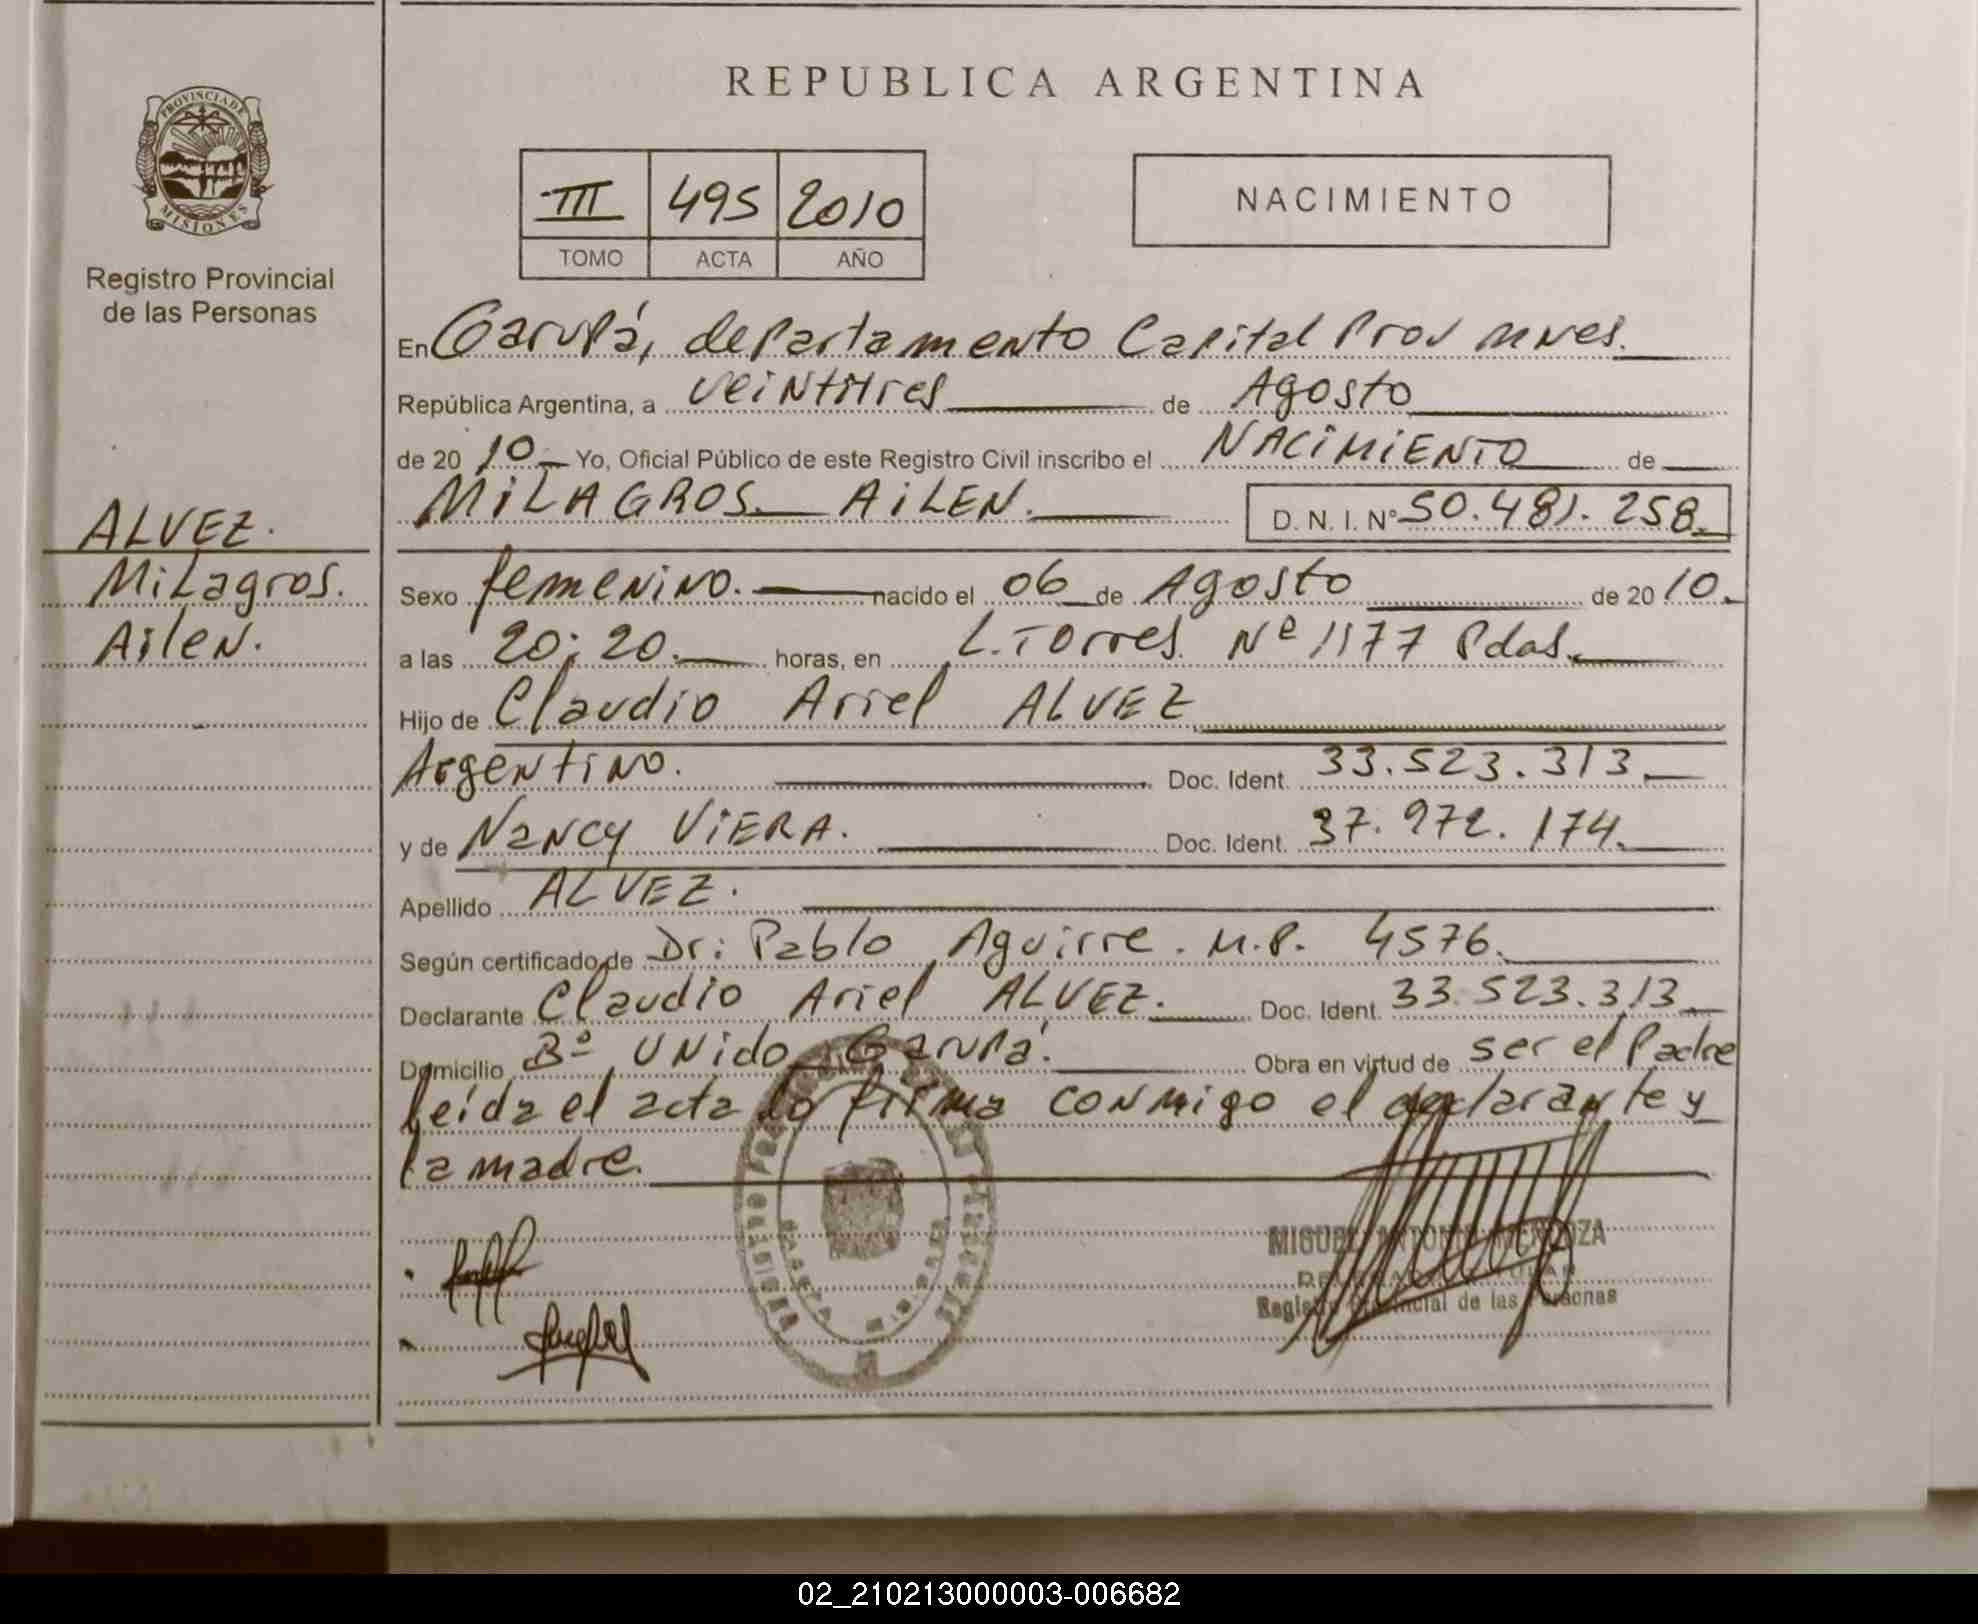 REPUBLICA ARGENTINA
PROVINCIA DE
MISIONES
Registro Provincial
de las Personas
III 495 2010
TOMO ACTA AÑO
NACIMIENTO
En Garupá, departamento Capital Prov mnes.
República Argentina, a veintitres de Agosto
de 2010 Yo, Oficial Público de este Registro Civil inscribo el NACIMIENTO de
MILAGROS AILEN. D. N. I. N° 50.481.258
ALVEZ.
Milagros.
Ailen.
Sexo femenino. nacido el 06 de Agosto de 2010.
a las 20:20. horas, en L. Torres Nº 1177 Pdas.
Hijo de Claudio Ariel ALVEZ
Argentino. Doc. Ident. 33.523.313.
y de Nancy VIERA. Doc. Ident. 37.972.174.
Apellido ALVEZ.
Según certificado de Dr: Pablo Aguirre. M.P. 4576.
Declarante Claudio Ariel ALVEZ. Doc. Ident. 33.523.313
Domicilio Bº Unido Garupá. Obra en virtud de ser el Padre
leída el acta lo firma conmigo el declarante y
la madre.
MIGUEL ANTONIO MENDOZA
Registro Provincial de las Personas
02_210213000003-006682